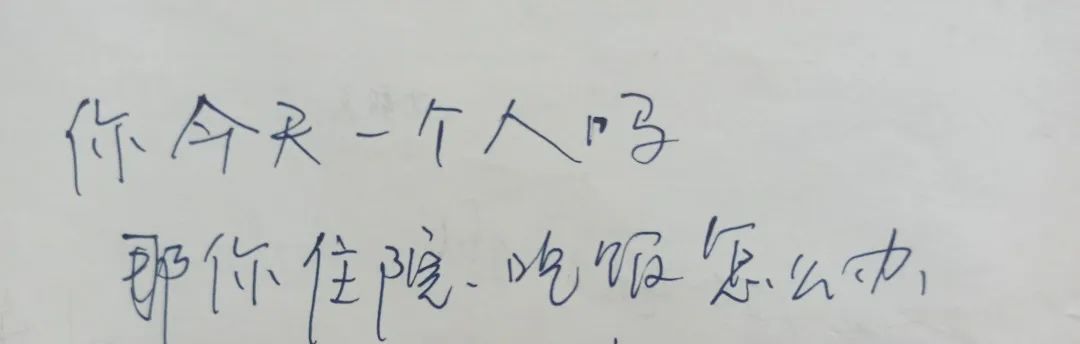 你今天一个人吗
那你住院、吃饭怎么办